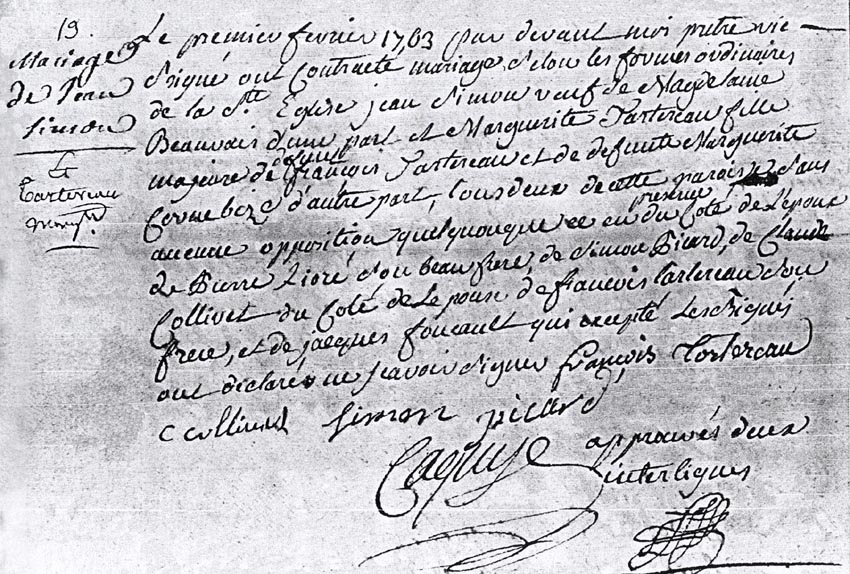 19.
Mariage
de jean
simon
et
tartereau
Le premier fevrier 1763 par devant moi pretre vic
signé ont Contracté mariage selon les formes ordinaires
de la Ste Eglise jean Simon veuf de Magdelaine
Beauvais d'une part et Marguerite Tartereau fille
majeure de defunt françois Tartereau et de defunte Marguerite
d'autre part, tous deux de cette paroisse sans
aucune opposition quelquonque en presence du Coté de L'epoux
de Pierre son beau frere, de Simon Picard, de Claude
Collivet du Coté de Lepouse de francois tartereau son
frere, et de jacques foucault qui excepté les
ont declarés ne scavoir signer françois Tartereau
c collivet simon picard
approuvés deux
interlignes